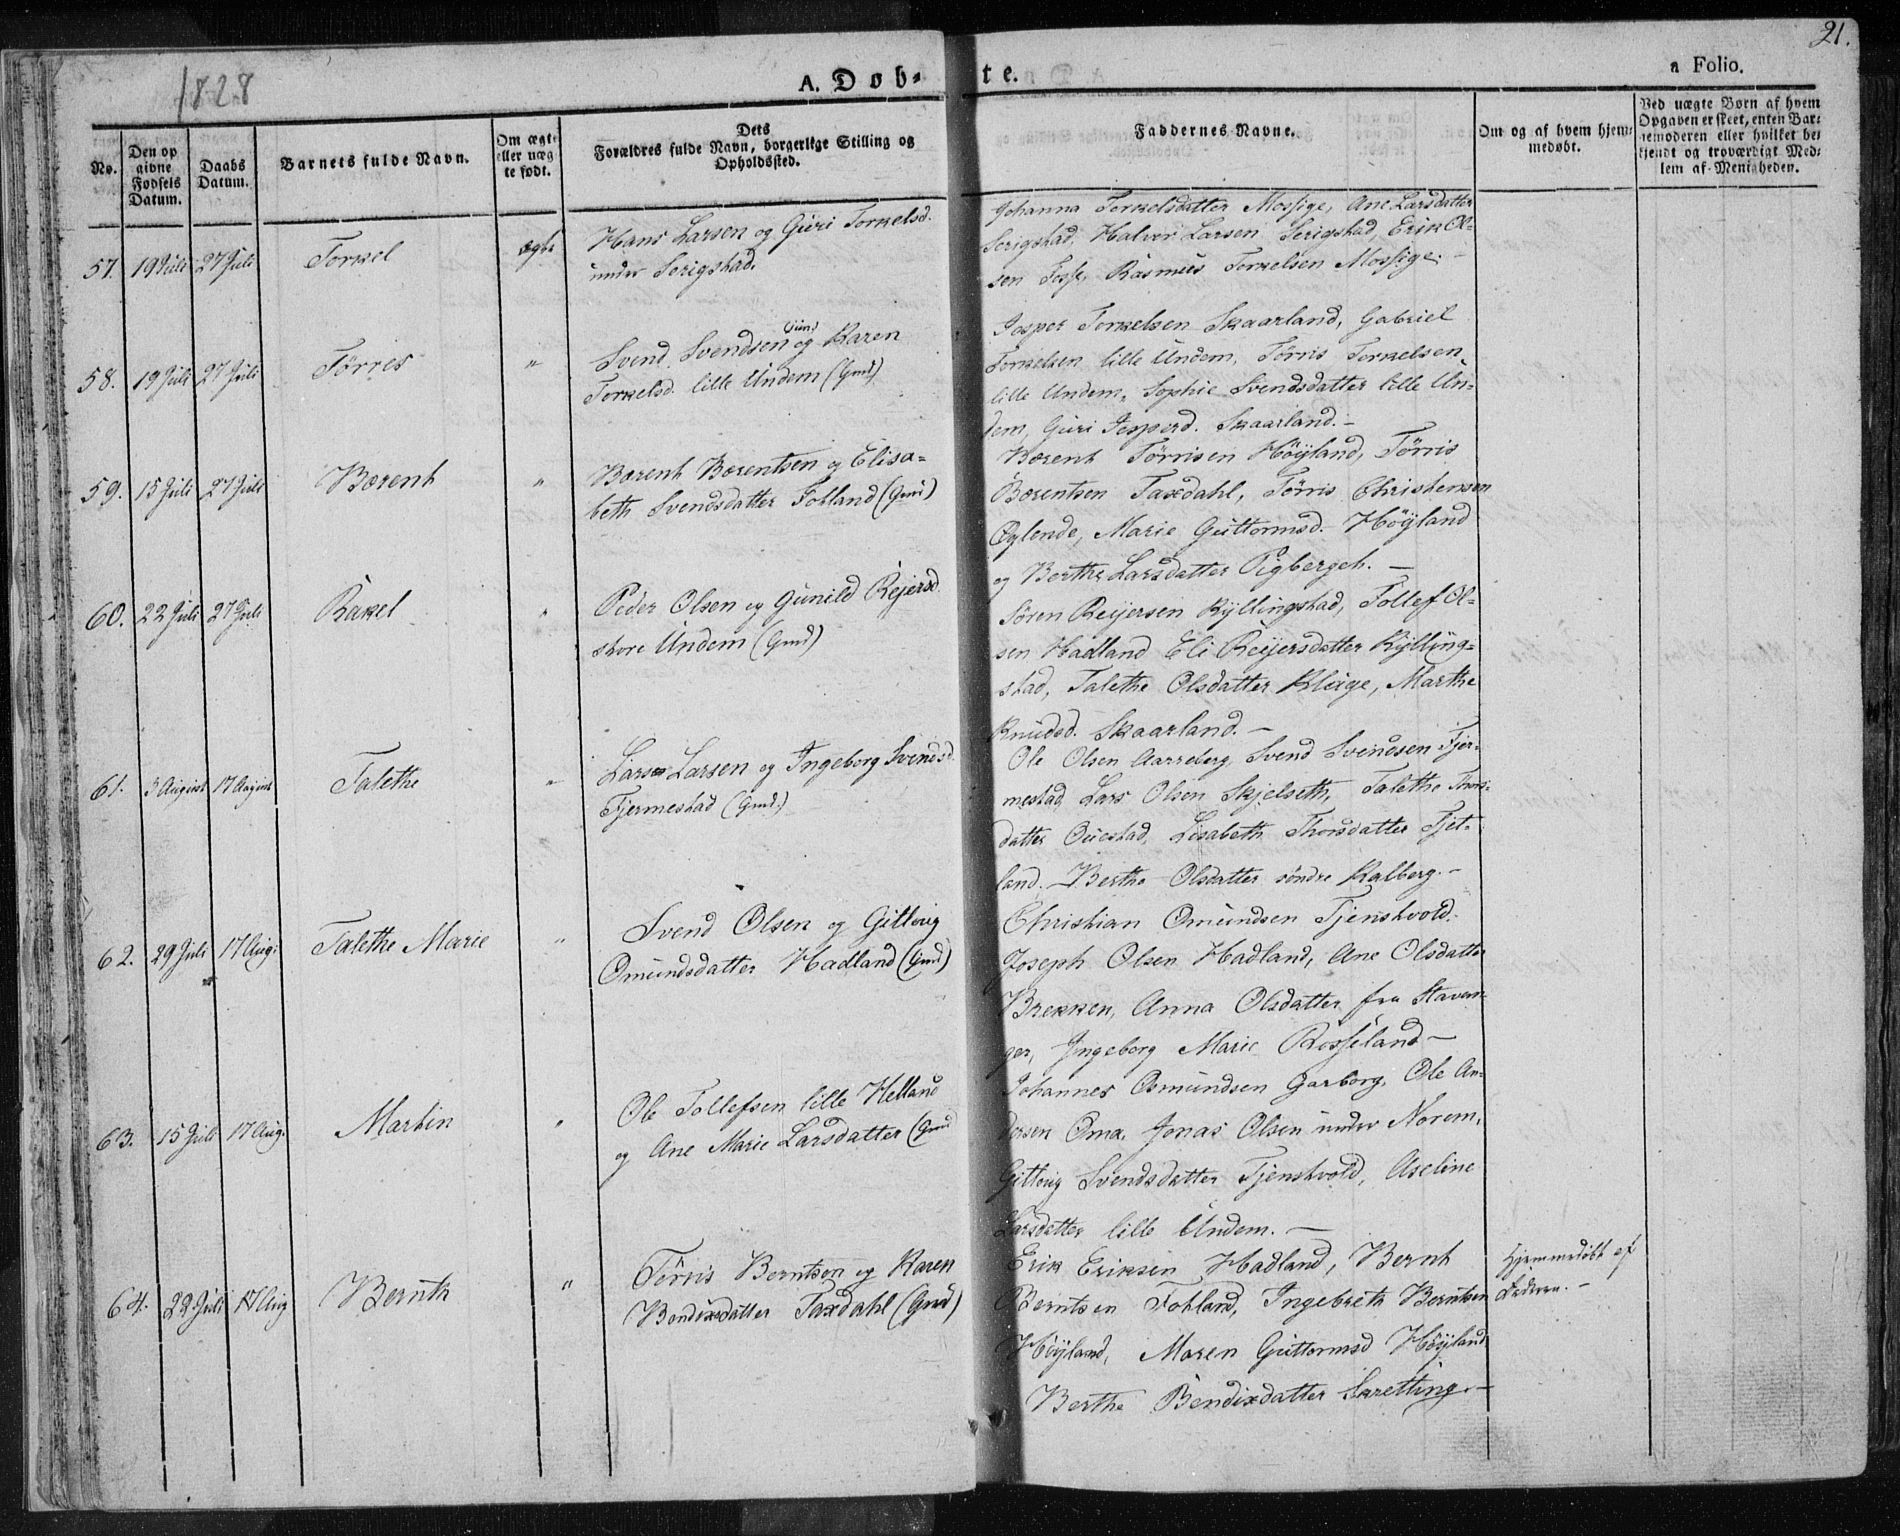 21.
1828
A. Døb-
te.
a Folio.
No.
Den op
givne
Fødsels
Datum.
Daabs
Datum.
Barnets fulde Navn.
Om ægte
eller uæg-
te født.
Dets
Forældres fulde Navn, borgerlige Stilling og
Opholdssted.
Faddernes Navne.
Om og af hvem hjem-
medøbt.
Ved uægte Børn af hvem
Opgaven er skeet, enten Bar-
nemoderen eller hvilket be-
kjendt og troværdigt Med-
lem af Menigheden.
57. 19 Juli 27 Juli Torkel ægte
Hans Larsen og Guri Torkelsd.
under Serigstad.
Johanna Torkelsdatter Mossige, Ane Larsdatter
Serigstad, Halvor Larsen Serigstad, Erik Ol-
sen Fosse, Rasmus Torkelsen Mossige. -
58. 19 Juli 27 Juli Tørres "
Svend Svendsen og Karen
Torkelsd. lille Undem (Gmd)
Jesper Torkelsen Skaarland, Gabriel
Torkelsen lille Undem, Tørris Torkelsen
lille Undem, Sophie Svendsdatter lille Un-
dem, Guri Jesperd. Skaarland. -
59. 15 Juli 27 Juli Bærent "
Bærent Bærentsen og Elisa-
beth Svendsdatter Fotland (Gmd)
Bærent Tørrisen Høyland, Tørris
Børentsen Taxdahl, Tørris Christensen
Øglende, Marie Guttormsd. Høyland
og Berthe Larsdatter Pigberget. -
60. 22 Juli 27 Juli Rakel "
Peder Olsen og Gunild Rejersd.
store Undem (Gmd)
Søren Reijersen Kyllingstad, Tollef Ol-
sen Hadland Eli Reijersdatter Kylling-
stad, Talethe Olsdatter Kluge, Marthe
Knudsd. Skaarland. -
61. 3 August 17 August Talethe "
Lars Larsen og Ingeborg Svendsd.
Fjermestad (Gmd.)
Ole Olsen Aarreberg, Svend Svendsen Fjer-
mestad, Lars Olsen Skjelseth, Talethe Thors-
datter Ouestad, Lisabeth Thorsdatter Tjet-
land. Berthe Olsdatter søndre Kalberg. -
62. 29 Juli 17 Aug: Talethe Marie "
Svend Olsen og Gitlevig
Omundsdatter Hadland (Gmd)
Christian Omundsen Tjenstvold.
Joseph Olsen Hadland, Ane Olsdatter
Brekken, Anna Olsdatter fra Stavan-
ger, Ingeborg Marie Rosseland -
63. 15 Juli 17 Aug. Martin "
Ole Tollefsen lille Helland
og Ane Marie Larsdatter (Gmd
Johannes Osmundsen Garborg, Ole An-
dersen Oma, Jonas Olsen under Norem,
Gitlevig Svendsdatter Tjenstvold, Aseline
Larsdatter lille Undem. -
64. 22 Juli 17 Aug Bernth "
Tørris Berntsen og Karen
Bendixdatter Taxdahl (Gmd)
Erik Eriksen Hadland, Bernt
Berntsen Fotland, Ingebreth Berntsen
Høyland, Maren Guttormsd Høyland
Berthe Bendixdatter Skretting. -
Hjemmedøbt af
Faderen. -